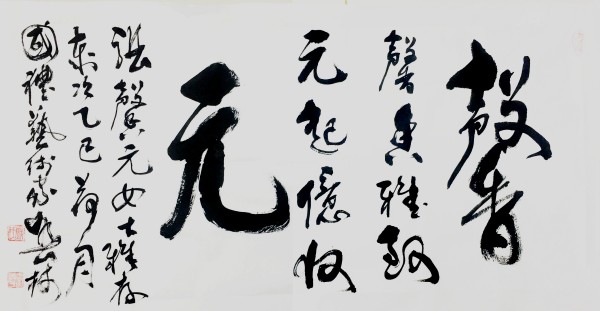 馨
馨香雅韵
元起億收
元
張馨元女士雅存
歲次乙巳荷月
國禮藝術家